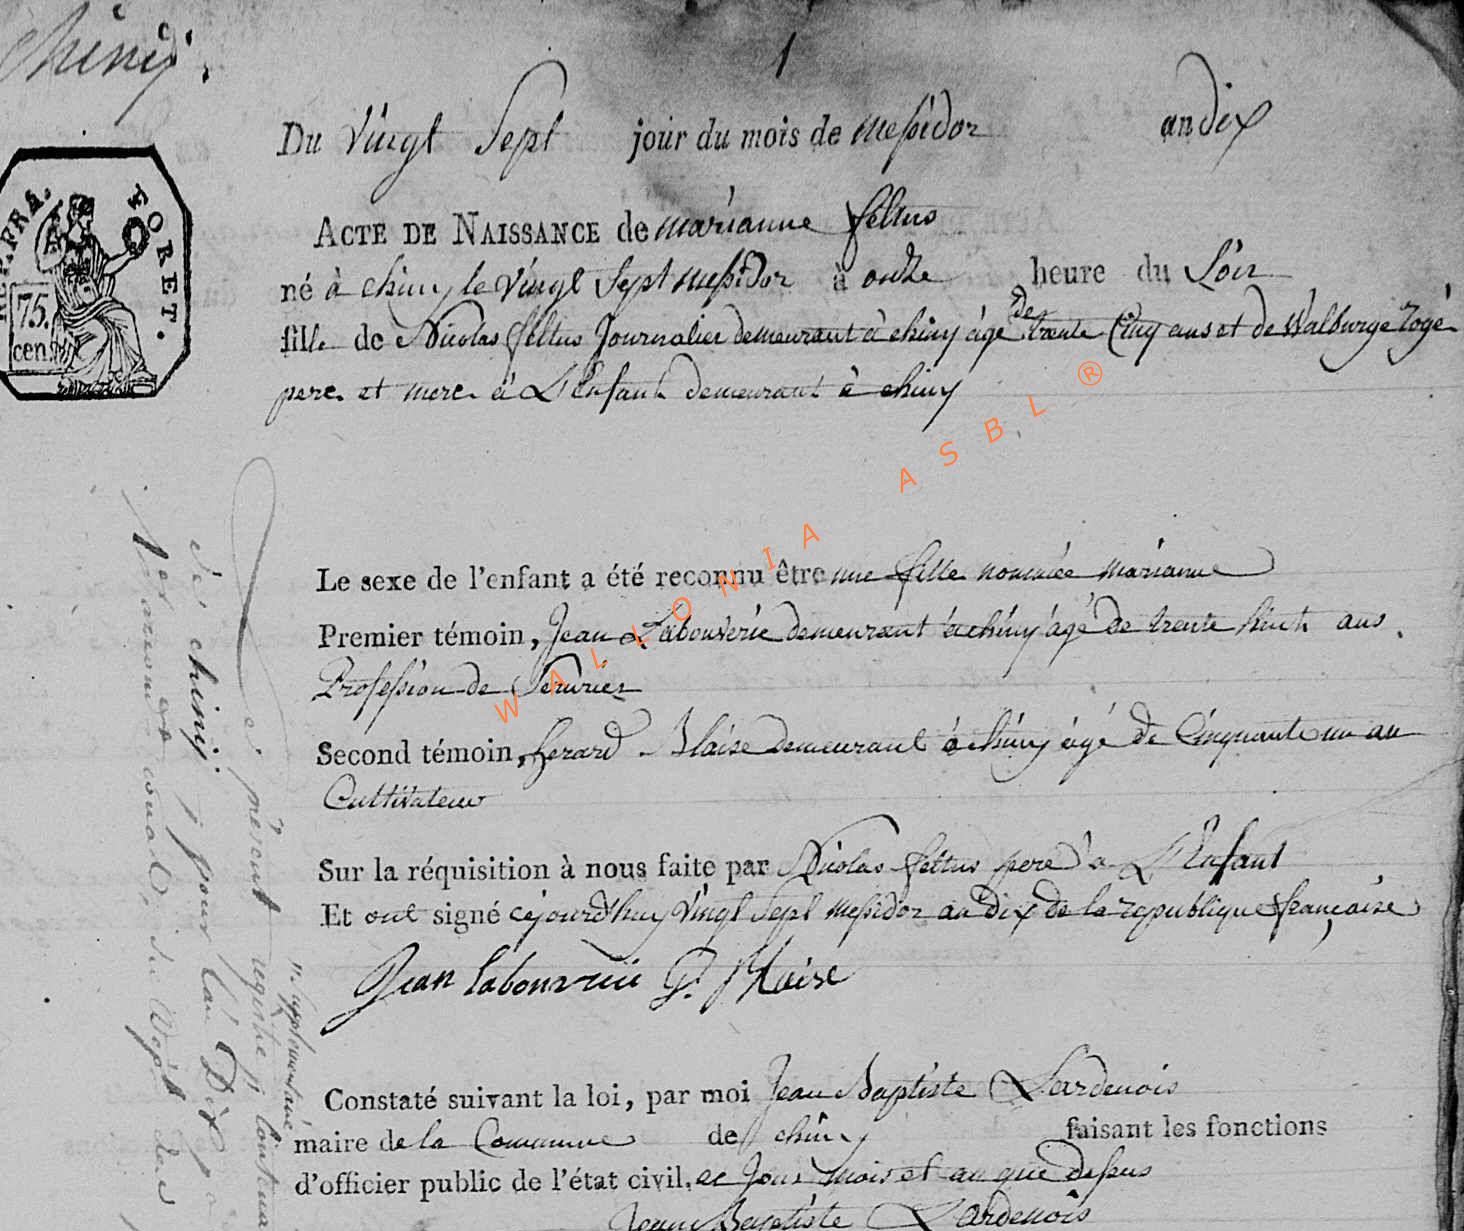 Chiny.
1
Du Vingt Sept jour du mois de Messidor an dix
REP. FRA. FORET.
75. cen.
ACTE DE NAISSANCE de marianne fellus
né à chiny le Vingt Sept Messidor à onze heure du Soir
fille de Nicolas fellus Journalier demeurant à chiny agé de trente Cinq ans et de Walburge Zogé
pere et mere à L'Enfant demeurant à chiny
Le sexe de l'enfant a été reconnu être une fille nommée marianne
Premier témoin, Jean Labouverie demeurant à chiny agé de trente huit ans
Profession de Serurier
Second témoin, Gerard Blaise demeurant à chiny agé de Cinquante un an
Cultivateur
Sur la réquisition à nous faite par Nicolas fellus pere à L'Enfant
Et ont signé cejourdhuy Vingt Sept Messidor an dix de la republique française
Jean labouverie G. Blaise
Constaté suivant la loi, par moi Jean Baptiste Lardenois
maire de la Commune de chiny faisant les fonctions
d'officier public de l'état civil, ce Jour mois et an que dessus
Jean Baptiste Lardenois
Le présent registre
supplémentaire
de chiny, pour l'an Dix
WALLONIA ASBL ®